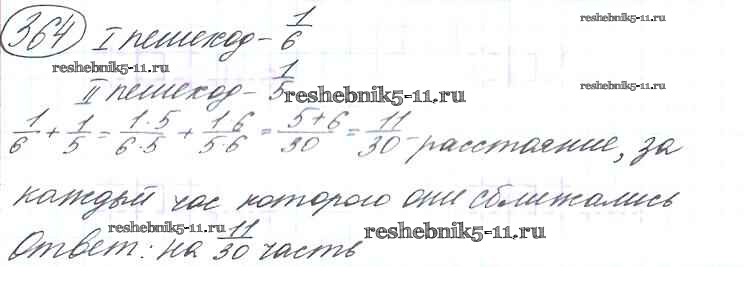 364 I пешеход - 1/6 reshebnik5-11.ru
reshebnik5-11.ru
II пешеход - 1/5 reshebnik5-11.ru reshebnik5-11.ru
1/6 + 1/5 = 1·5/6·5 + 1·6/5·6 = 5+6/30 = 11/30 - расстояние, за
каждый час которого они сближались
Ответ: на 11/30 часть reshebnik5-11.ru reshebnik5-11.ru